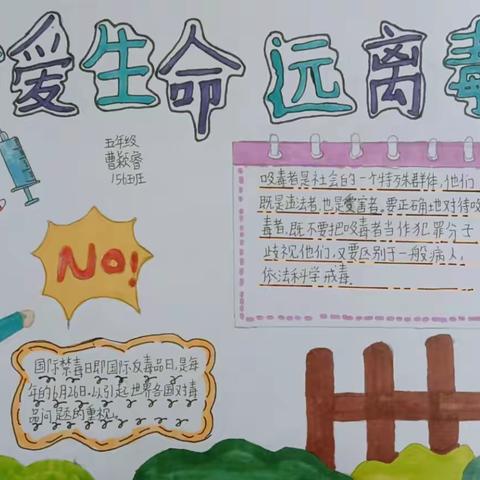 爱生命 远离毒
五年级
曹颖睿
156班
NO!
吸毒者是社会的一个特殊群体,他们
既是违法者,也是受害者,要正确地对待吸
毒者,既不要把吸毒者当作犯罪分子
歧视他们,又要区别于一般病人,
依法科学戒毒.
国际禁毒日即国际反毒品日,是每
年的6月26日,以引起世界各国对毒
品问题的重视。